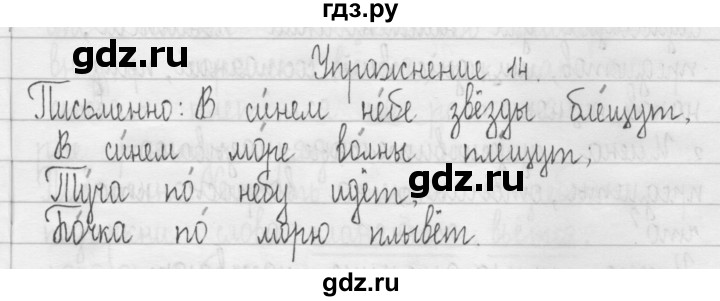 гдз.ру
gdz.ru gdz.ru
Упражнение 14.
Письменно: В си́нем не́бе звёзды бле́щут,
В си́нем мо́ре во́лны пле́щут;
Ту́ча по́ небу идёт,
Бо́чка по́ морю плывёт.
gdz.ru gdz.ru